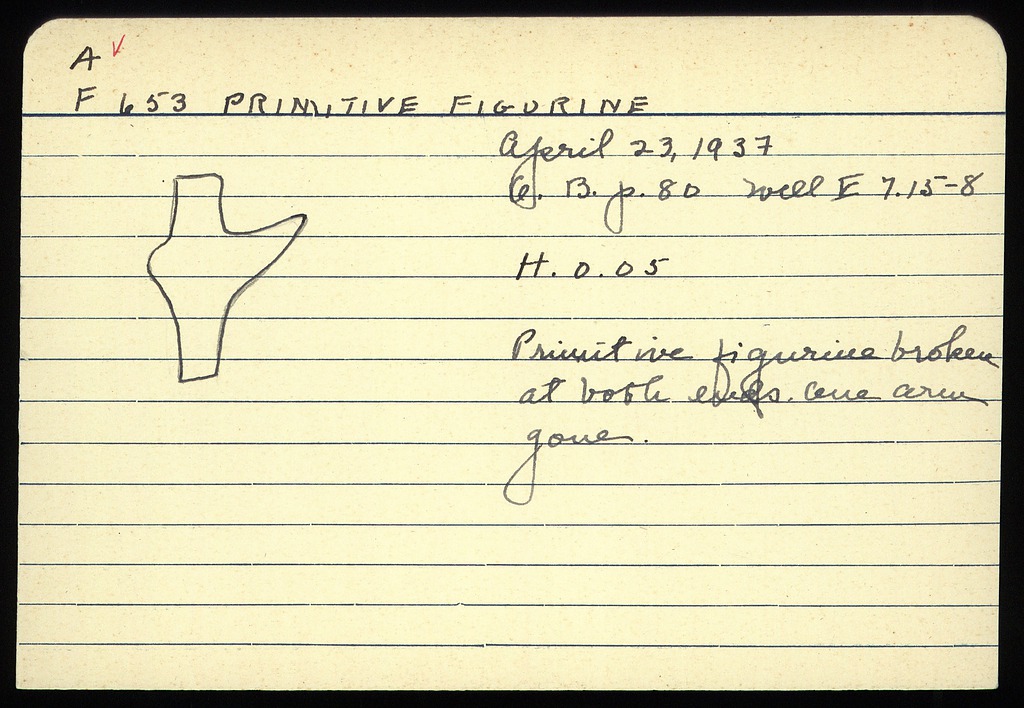 A
F 653 PRIMITIVE FIGURINE
April 23, 1937
B. p. 80 well E 7.15-8
H. 0.05
Primitive figurine broken
at both ends. one arm
gone.